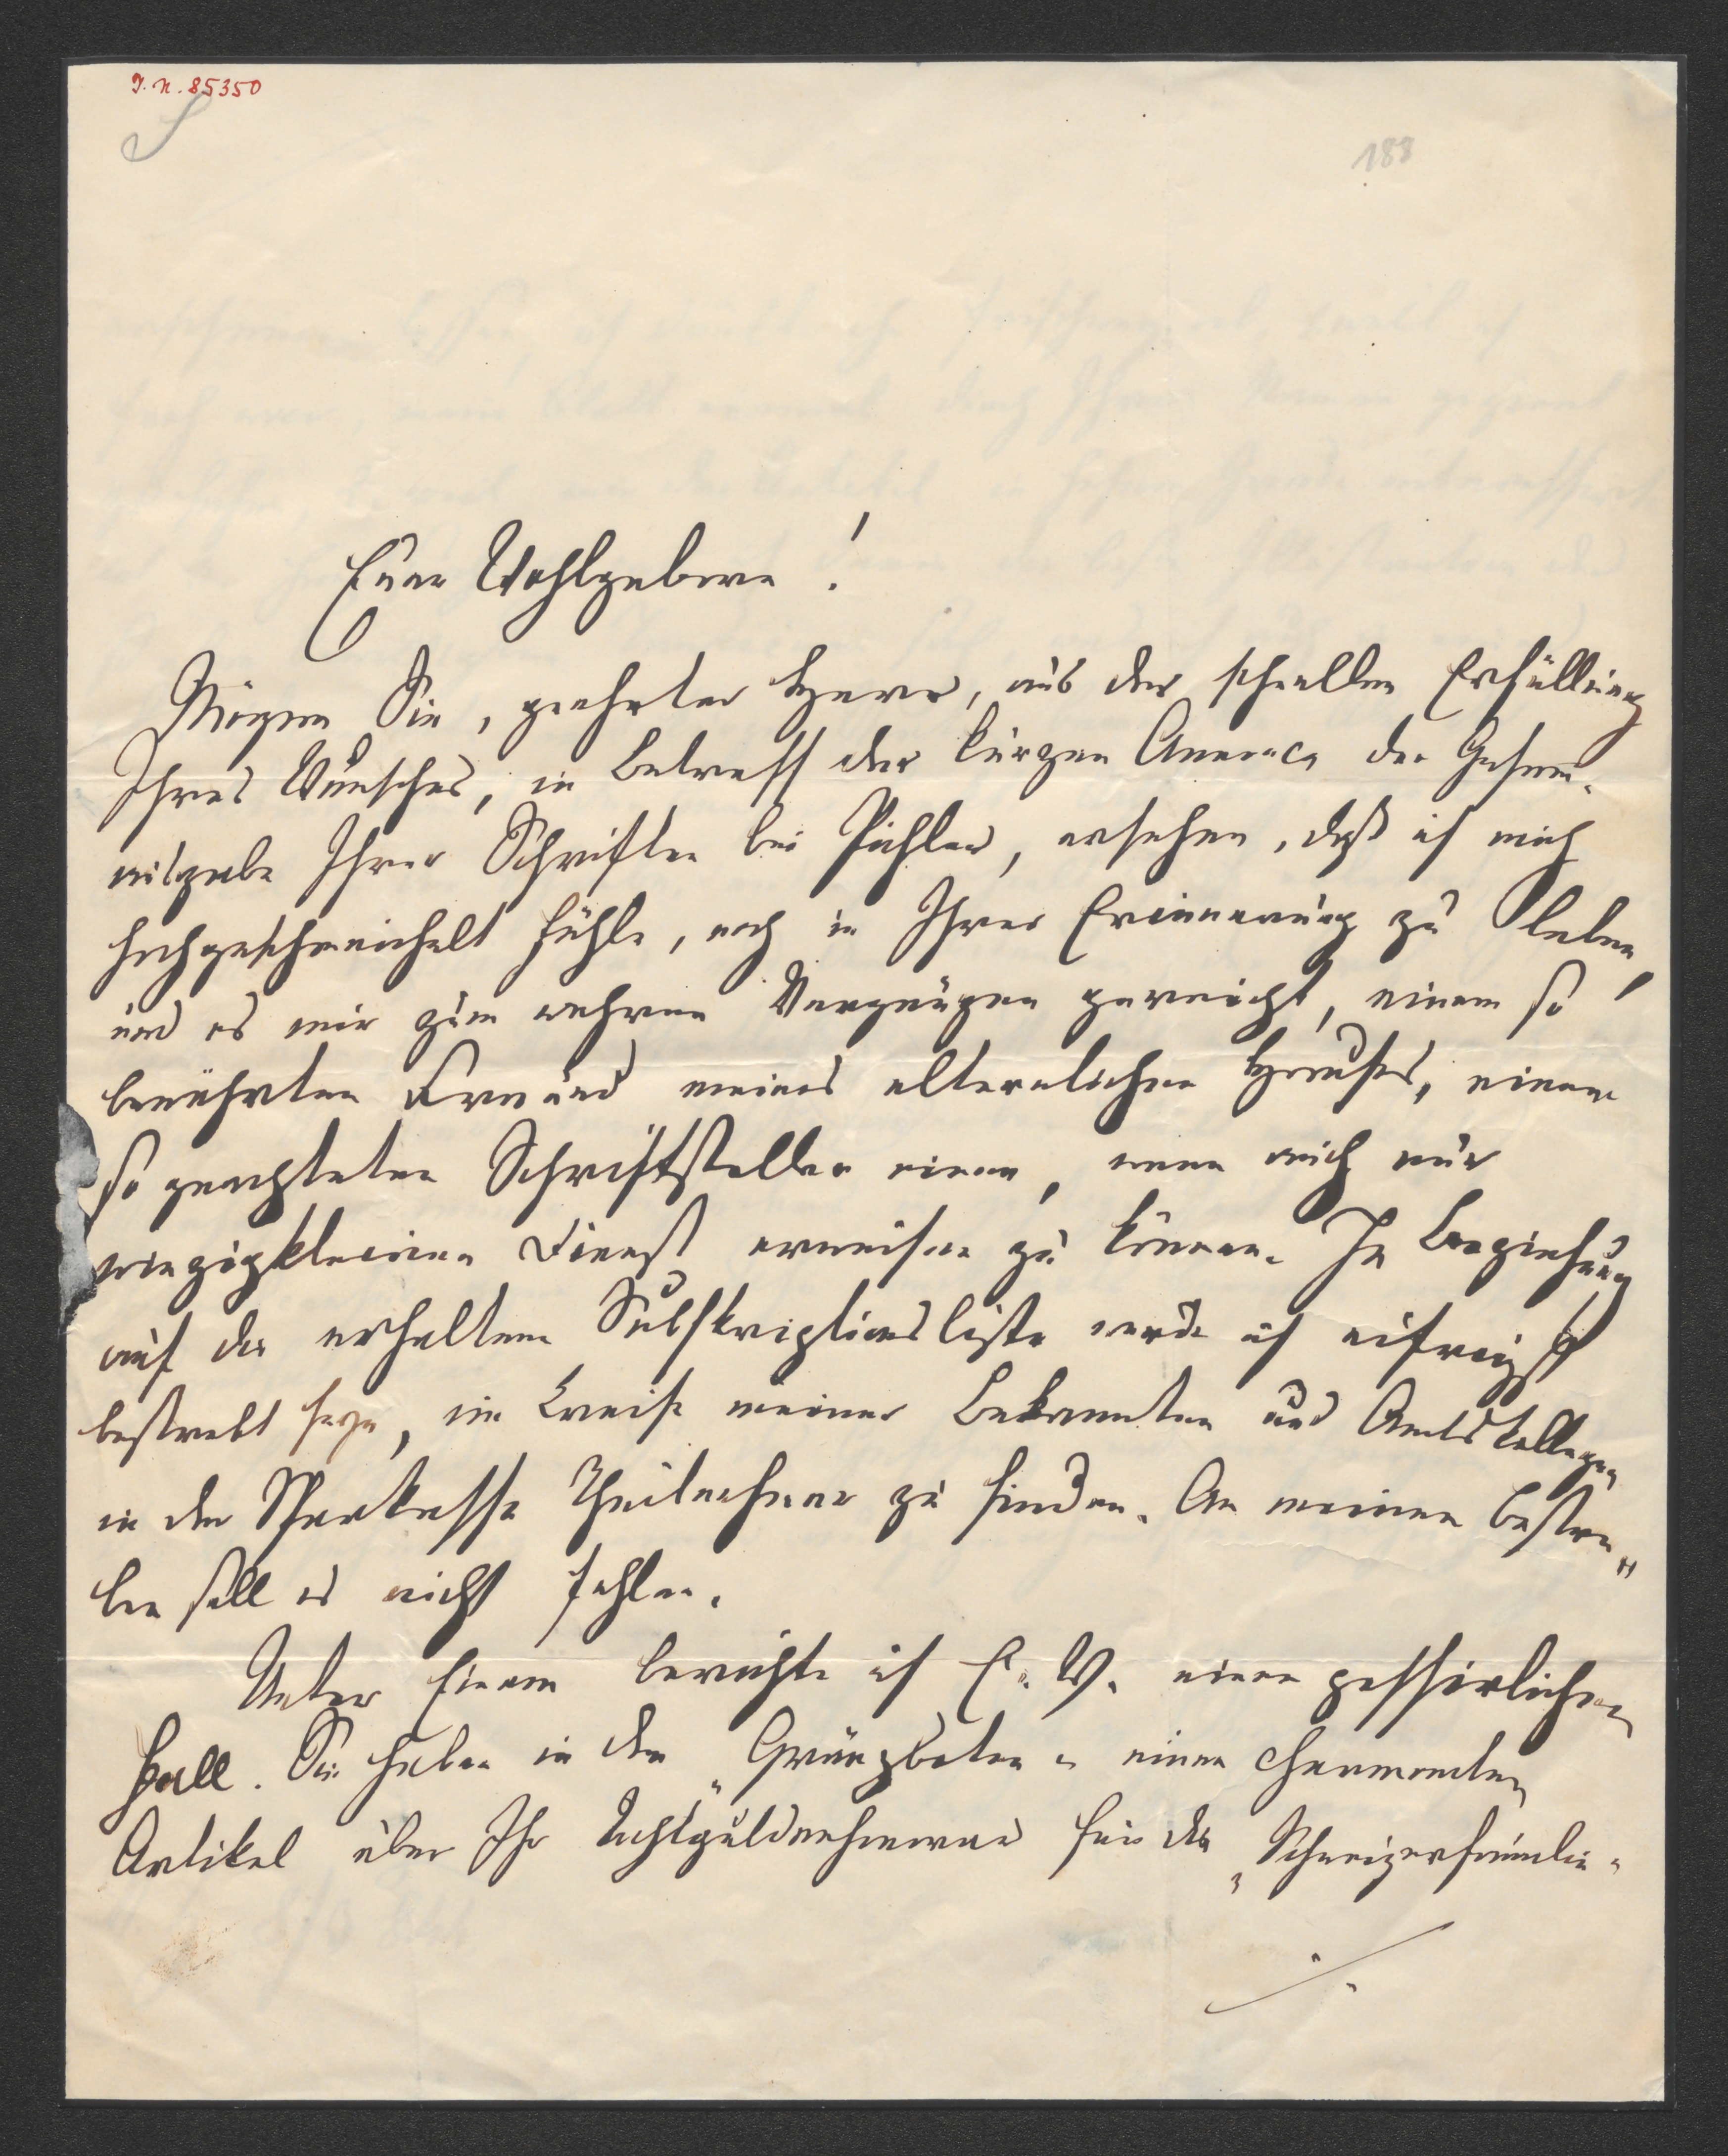 I. N. 85350
188
Euer Wohlgeboren!
Mögen Sie, geehrter Herr, aus der schnellen Erfüllung
Ihres Wunsches, in Betreff der kurzen Annonce der Gesam-
ausgabe Ihrer Schriften bei Pichler, ersehen, daß ich mich
hochgeschmeichelt fühle, noch in Ihrer Erinnerung zu leben,
und es mir zum wahren Vergnügen gereicht, einem so
bewährten Freund meines älterlichen Hauses, einem
so geachteten Schriftsteller einen, wenn auch nur
winzigkleinen Dienst erweisen zu können. In Beziehung
auf die erhaltene Subskriptionsliste werde ich eifrigst
bestrebt seyn, im Kreise meiner Bekannten und Amtskollegen
in der Sparkasse Theilnehmer zu finden. An meinem Bestre-
ben soll es nicht fehlen.
Unter Einem berichte ich E. W. einen possirlichen
Fall. Sie haben in den „Gränzboten" einen charmanten
Artikel über Ihr für die „Schweizerfamilie"